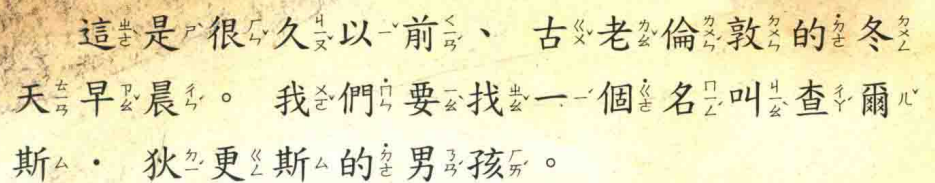 這是很久以前、古老倫敦的冬
天早晨。我們要找一個名叫查爾
斯・狄更斯的男孩。